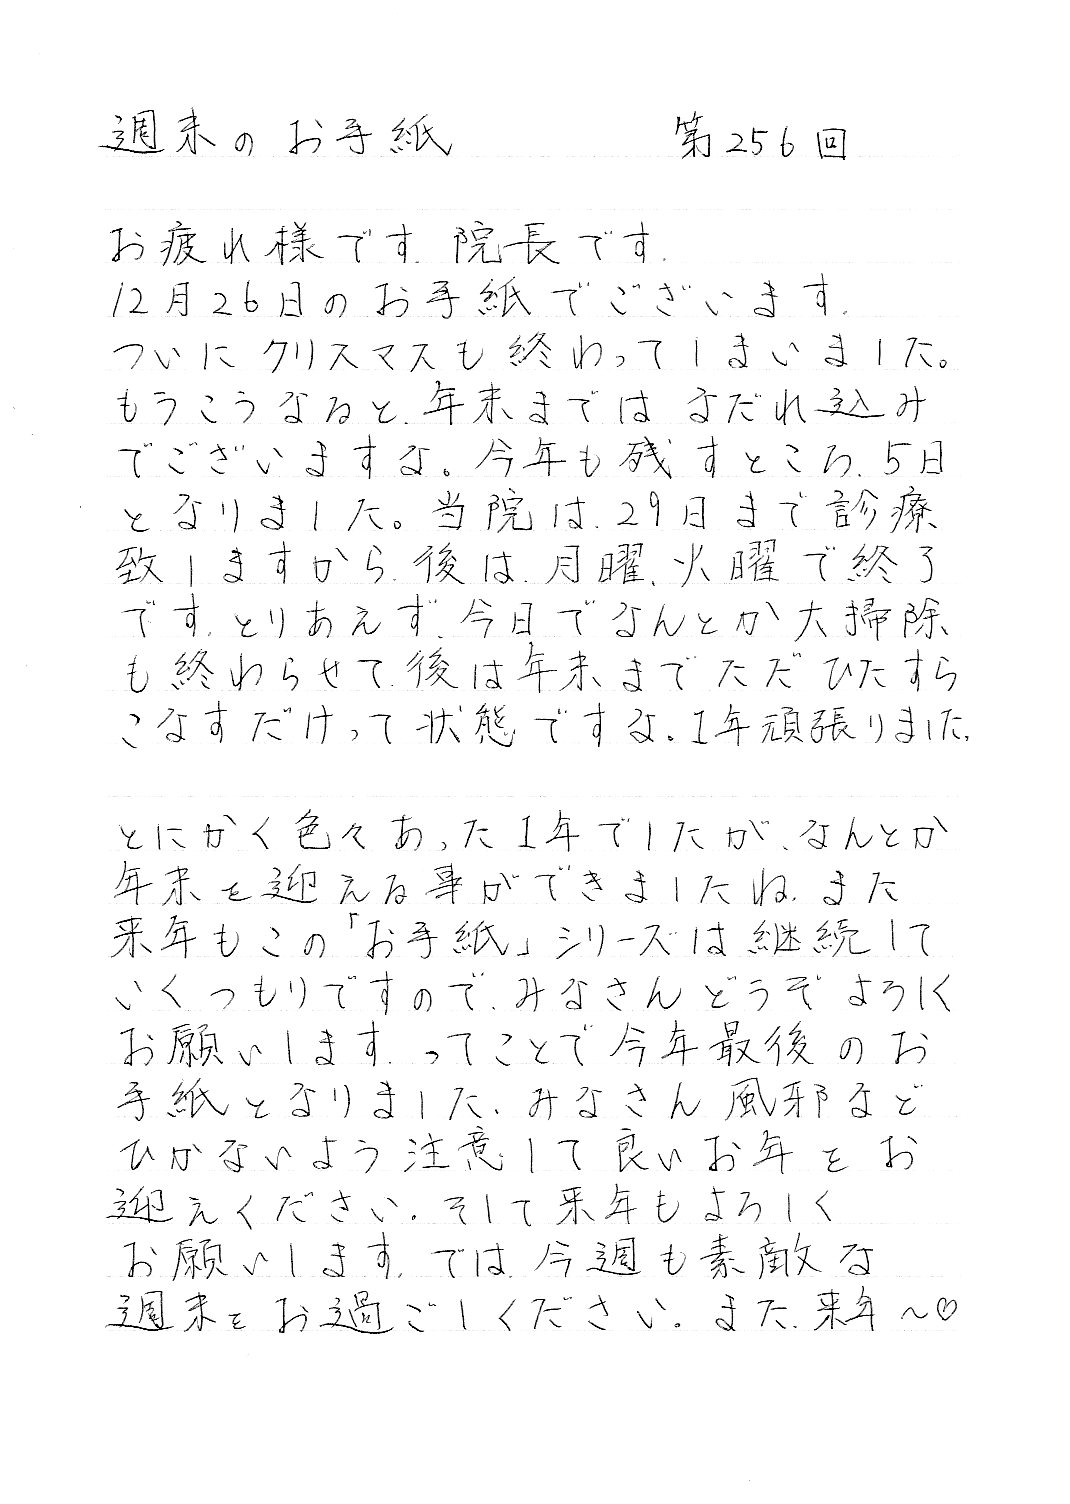 週末のお手紙 第256回
お疲れ様です.院長です.
12月26日のお手紙でございます.
ついにクリスマスも終わってしまいました。
もうこうなると、年末まではなだれ込み
でございますな。今年も残すところ、5日
となりました。当院は、29日まで診療
致しますから、後は、月曜、火曜で終了
です.とりあえず、今日でなんとか大掃除
も終わらせて、後は年末までただひたすら
こなすだけって状態ですな。1年頑張りました.
とにかく色々あった1年でしたが、なんとか
年末を迎える事ができましたね.また
来年もこの「お手紙」シリーズは継続して
いくつもりですので、みなさんどうぞよろしく
お願いします.ってことで今年最後のお
手紙となりました.みなさん風邪など
ひかないよう注意して良いお年をお
迎えください.そして来年もよろしく
お願いします.では、今週も素敵な
週末をお過ごしください.また、来年〜♡